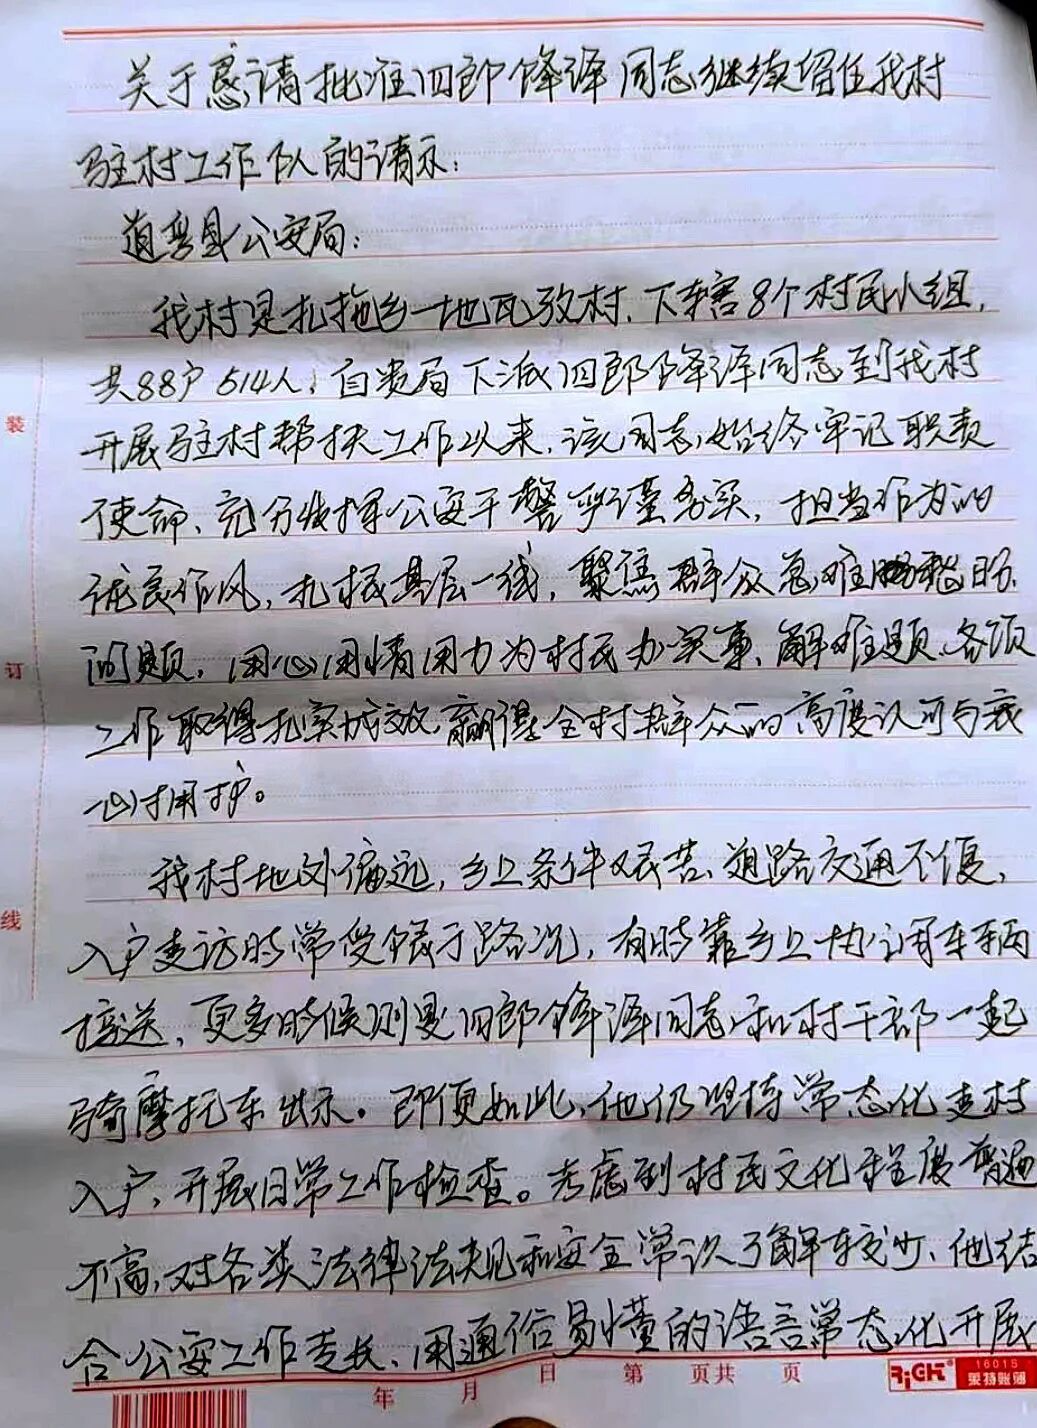 关于恳请批准四郎降泽同志继续留任我村
驻村工作队的请示：
道孚县公安局：
我村是扎拖乡一地瓦孜村，下辖8个村民小组，
共88户514人，自贵局下派四郎降泽同志到我村
开展驻村帮扶工作以来，该同志始终牢记职责
使命、充分发挥公安干警严谨务实，担当作为的
优良作风，扎根基层一线，聚焦群众急难愁盼
问题，用心用情用力为村民办实事、解难题、各项
工作取得扎实成效，赢得全村群众的高度认可与衷
心拥护。
我村地处偏远，乡上条件艰苦、道路交通不便，
入户走访时常受限于路况，有时靠乡上协调车辆
接送，更多时候则是四郎降泽同志和村干部一起
骑摩托车出示。即便如此，他仍坚持常态化走村
入户，开展日常工作检查。考虑到村民文化程度普遍
不高，对各类法律法规和安全常识了解较少、他结
合公安工作专长、用通俗易懂的语言常态化开展
装
订
线
年 月 日 第 页共 页
RiCHT 16015
莱特账簿